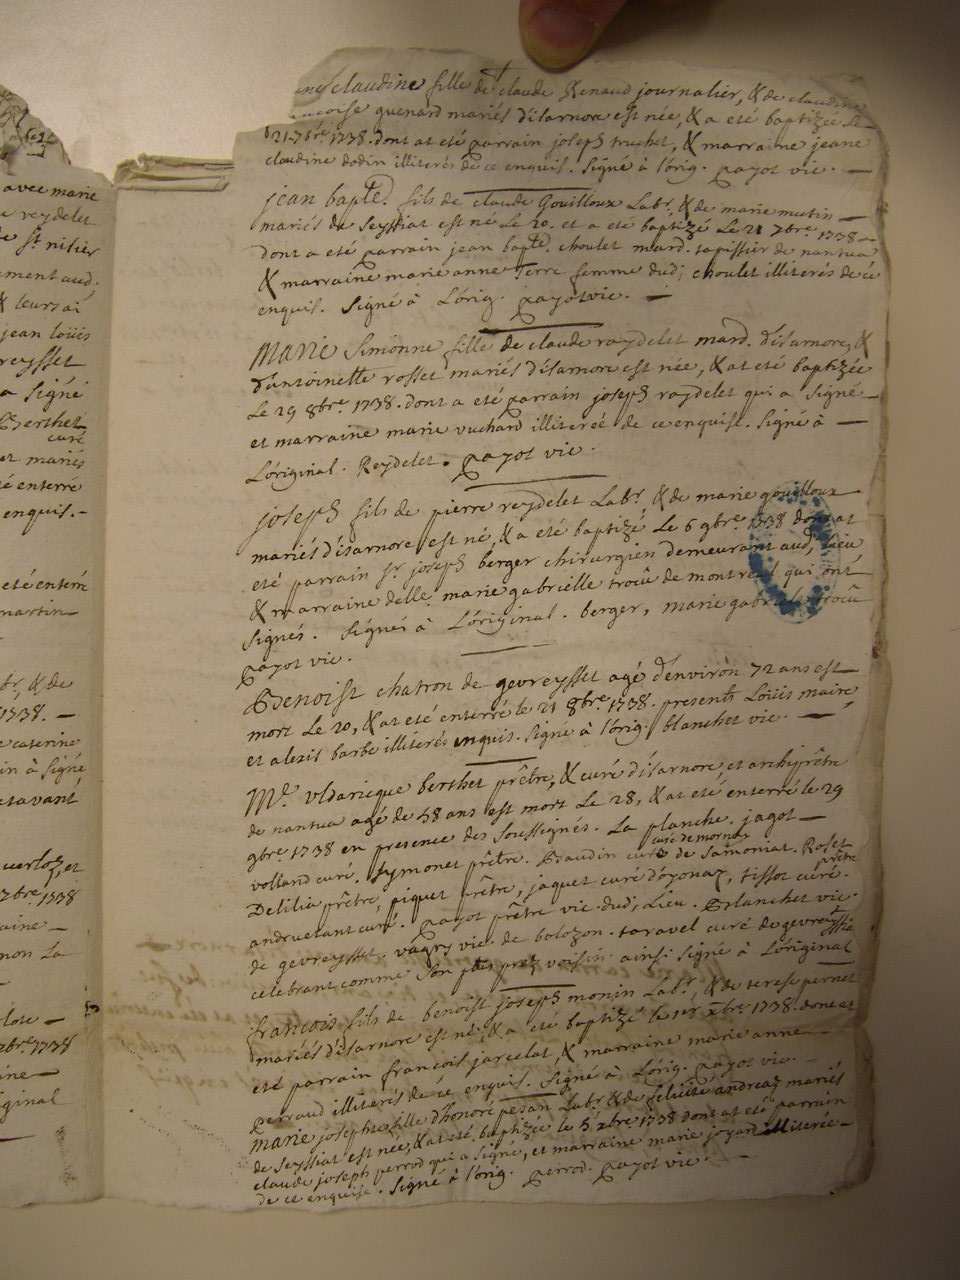 avec marie
reydelet
de st. nitier
ement aud.
& leurs ai
jean loüis
reysset
a signé
Berthet
curé
et mariés
té enterré
enquis.-
eté enterré
martin
br. & de
1738.-
caterine
in à signé
etavant
verloz, et
bre. 1738
aine-
non La
lote-
bre. 1738
ine-
iginal
claudine fille de claude Renaud journalier, & de claudine
quenard mariés d'isarnore est née, & a eté baptizée Le
21. 7bre. 1738. dont at eté parrain joseph truchet, & marraine jeane
claudine dodin illiterés de ce enquis. signé à lórig. payot vic.-
jean bapte. fils de claude Gouilloux Labr. & de marie mutin-
mariés de seyssiat est né Le 20. et a eté baptizé Le 21 7bre. 1738-
dont a eté parrain jean bapte. choulet mard. tapissier de nantua
& marraine marie anne Terre femme dud; choulet illiterés de cé
enquis. signé à Lórig. payot vic.-
Marie Simonne fille de claude raydelet mard. d'isarnore, &
d'antoinette rosset mariés d'isarnore est née, & at eté baptizée
Le 29 8bre. 1738. dont a eté parrain joseph raydelet qui a signé-
et marraine marie vuchard illiterée de ce enquise. signé à-
Lóriginal. Reydelet. payot vic.
joseph fils de pierre reydelet Labr. & de marie gouilloux
mariés d'isarnore est né, & a eté baptizé Le 6 9bre. 1738 dont at
eté parrain sr. joseph berger chirurgien demeurant aud; Lieu
& marraine delle. marie gabrielle trocû de montreal qui ont
signés. signés à Lóriginal. berger, marie gabrielle trocû
payot vic.
Benoist chatron de gevreysset agé d'environ 72 ans est
mort Le 20, & at eté enterré le 21 8bre. 1738. presents Loüis maire
et alexis barbe illiterés enquis. signé à lórig. blanchet vic.-
Mre. vldarique berthet prêtre, & curé d'isarnore et archiprêtre
de nantua agé de 58 ans est mort Le 28, & at eté enterré le 29
9bre. 1738 en presence des soussignés. La planche. jagot-
volland curé. symonet prêtre. Beaudin curé de samoniat. Rosset
curé de mornay
prêtre
Delilia prêtre, piquet prêtre, jaquet curé d'oyonaz, tissot curé.
andruetant curé. payot prêtre vic. dud; Lieu. Blanchet vic.
de gevreysset. vagry vic. de bolozon. taravel curé de gevreyssia
célebrant comme son plus pret voisin ainsi signé à Lóriginal
francois fils de benoist joseph monin Labr. & de terese pernet
mariés d'isarnore est né; & a eté baptizé le 1er xbre. 1738. dont at
eté parrain francois jarcelat, & marraine marie anne-
perraud illiterés de cé enquis. signé à Lórig. payot vic.-
marie josephte fille d'honoré pesan Labr. & de felicité andreaz mariés
de seyssiat est née, & at eté baptizée le 5 xbre 1738 dont at eté parrain
claude joseph perrod qui a signé, et marraine marie joyard illiterée-
de ce enquise. signé à lórig. perrod. payot vic.-